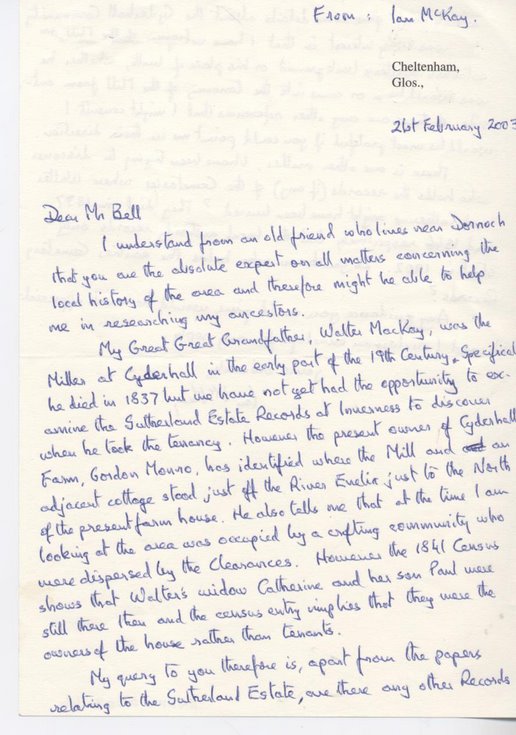 From: Ian McKay.
Cheltenham,
Glos.,
21st February 2003
Dear Mr Bell
I understand from an old friend who lives near Dornoch
that you are the absolute expert on all matters concerning the
local history of the area and therefore might be able to help
me in researching my ancestors.
My Great Great Grandfather, Walter MacKay, was the
Miller at Cyderhall in the early part of the 19th Century. Specifical
he died in 1837 but we have not yet had the opportunity to ex-
amine the Sutherland Estate Records at Inverness to discover
when he took the tenancy. However the present owner of Cyderhall
Farm, Gordon Munro, has identified where the Mill and an
adjacent cottage stood just off the River Evelix just to the North
of the present farm house. He also tells me that at the time I am
looking at the area was occupied by a crofting community who
were dispersed by the Clearances. However the 1841 Census
shows that Walter's widow Catherine and her son Paul were
still there then and the census entry implies that they were the
owners of the house rather than tenants.
My query to you therefore is, apart from the papers
relating to the Sutherland Estate, are there any other Records